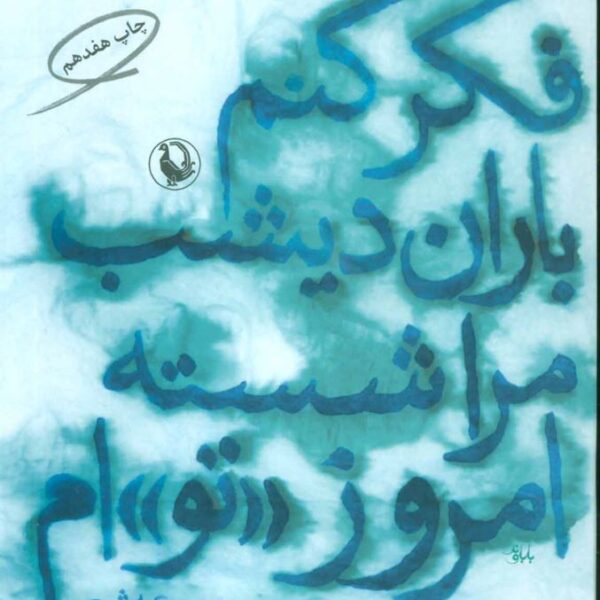 چاپ هفدهم
فکر کنم
باران دیشب
مرا شسته
امروز «تو» ام